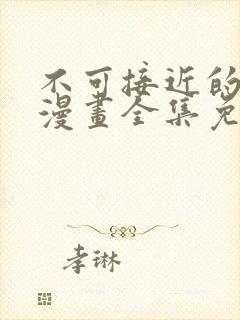 不可接近的
漫畫全集免
李琳